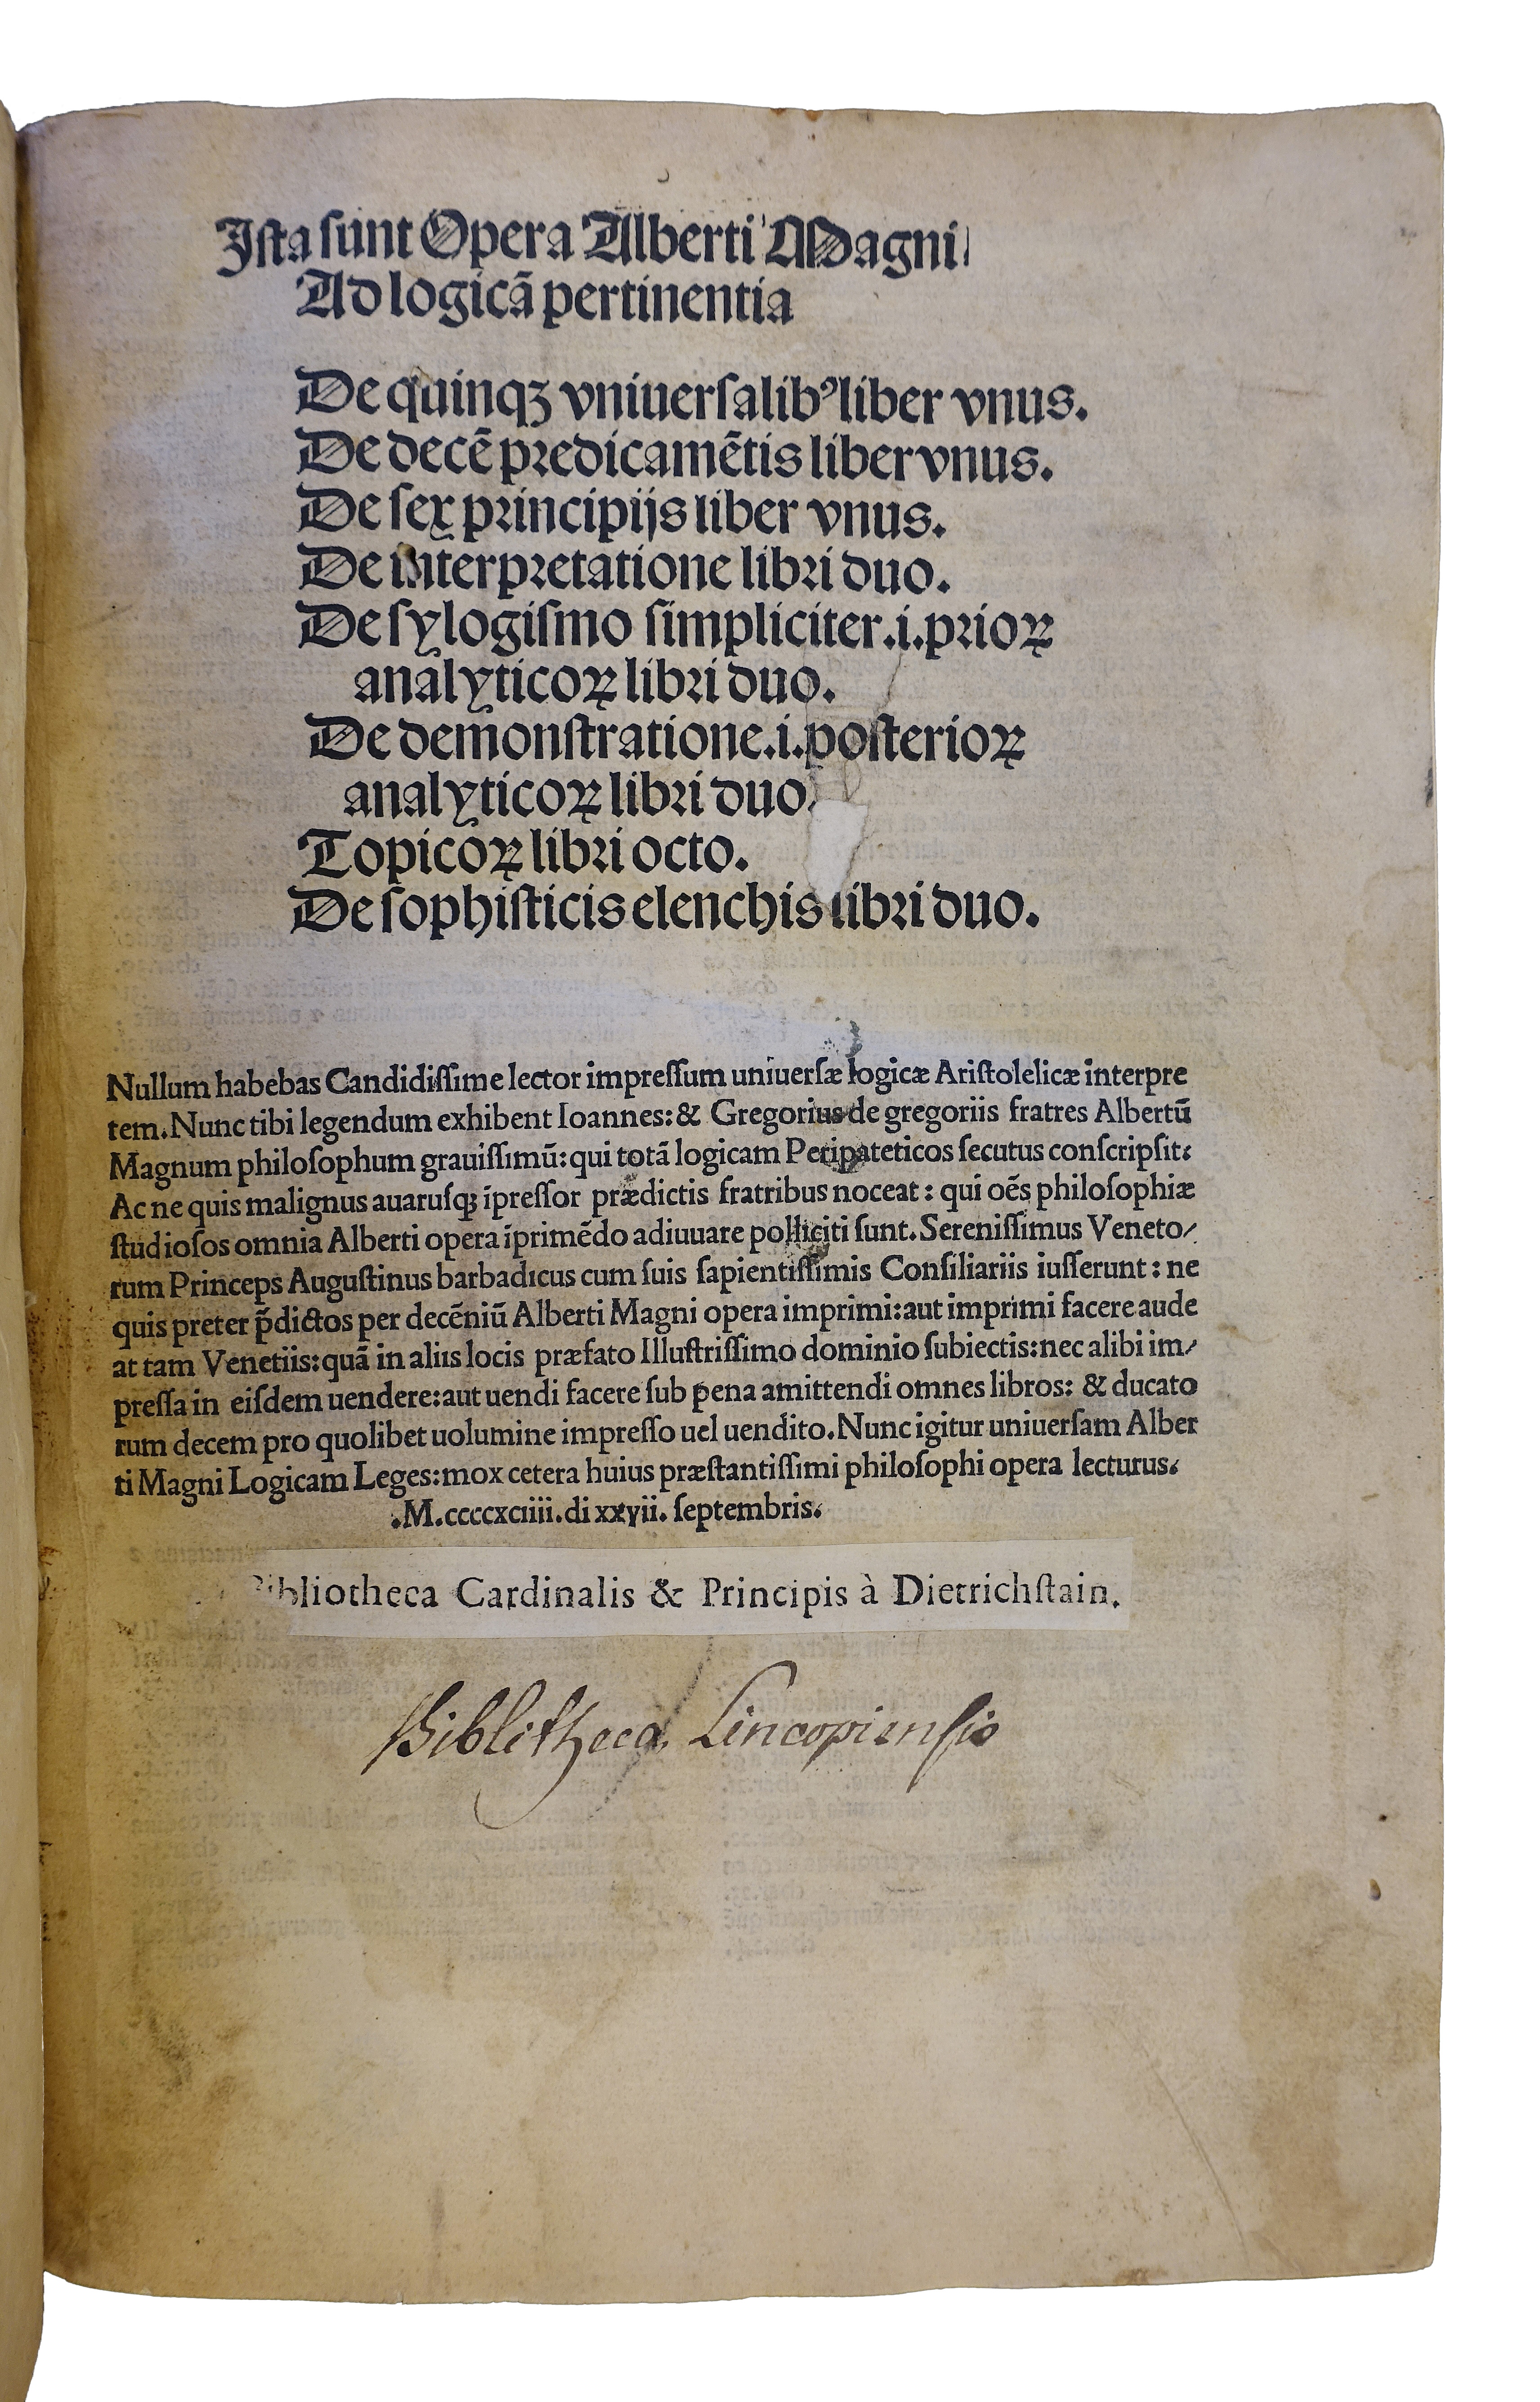 Iſta ſunt Opera Alberti Magni
Ad logicã pertinentia
De quinqꝫ vniuerſalibꝰ liber vnus.
De decẽ predicamẽtis liber vnus.
De ſex principijs liber vnus.
De interpretatione libri duo.
De ſylogiſmo ſimpliciter.i.prioꝝ
analyticoꝝ libri duo.
De demonſtratione.i.poſterioꝝ
analyticoꝝ libri duo.
Topicoꝝ libri octo.
De ſophiſticis elenchis libri duo.
Nullum habebas Candidiſſime lector impreſſum uniuerſæ logicæ Ariſtolelicæ interpre
tem. Nunc tibi legendum exhibent Ioannes: & Gregorius de gregoriis fratres Albertũ
Magnum philoſophum grauiſſimũ: qui totã logicam Peripateticos ſecutus conſcripſit:
Ac ne quis malignus auaruſqꝫ ĩpreſſor prædictis fratribus noceat: qui oẽs philoſophiæ
ſtudioſos omnia Alberti opera ĩprimẽdo adiuuare polliciti ſunt. Sereniſſimus Veneto/
rum Princeps Auguſtinus barbadicus cum ſuis ſapientiſſimis Conſiliariis iuſſerunt: ne
quis preter p̃dictos per decẽniũ Alberti Magni opera imprimi: aut imprimi facere aude
at tam Venetiis: quã in aliis locis præfato Illuſtriſſimo dominio ſubiectis: nec alibi im/
preſſa in eiſdem uendere: aut uendi facere ſub pena amittendi omnes libros: & ducato
rum decem pro quolibet uolumine impreſſo uel uendito. Nunc igitur uniuerſam Alber
ti Magni Logicam Leges: mox cetera huius præſtantiſſimi philoſophi opera lecturus.
.M.ccccxciiii.di xxvii. ſeptembris.
Bibliotheca Cardinalis & Principis à Dietrichſtain.
Biblitheca Lincopienſis